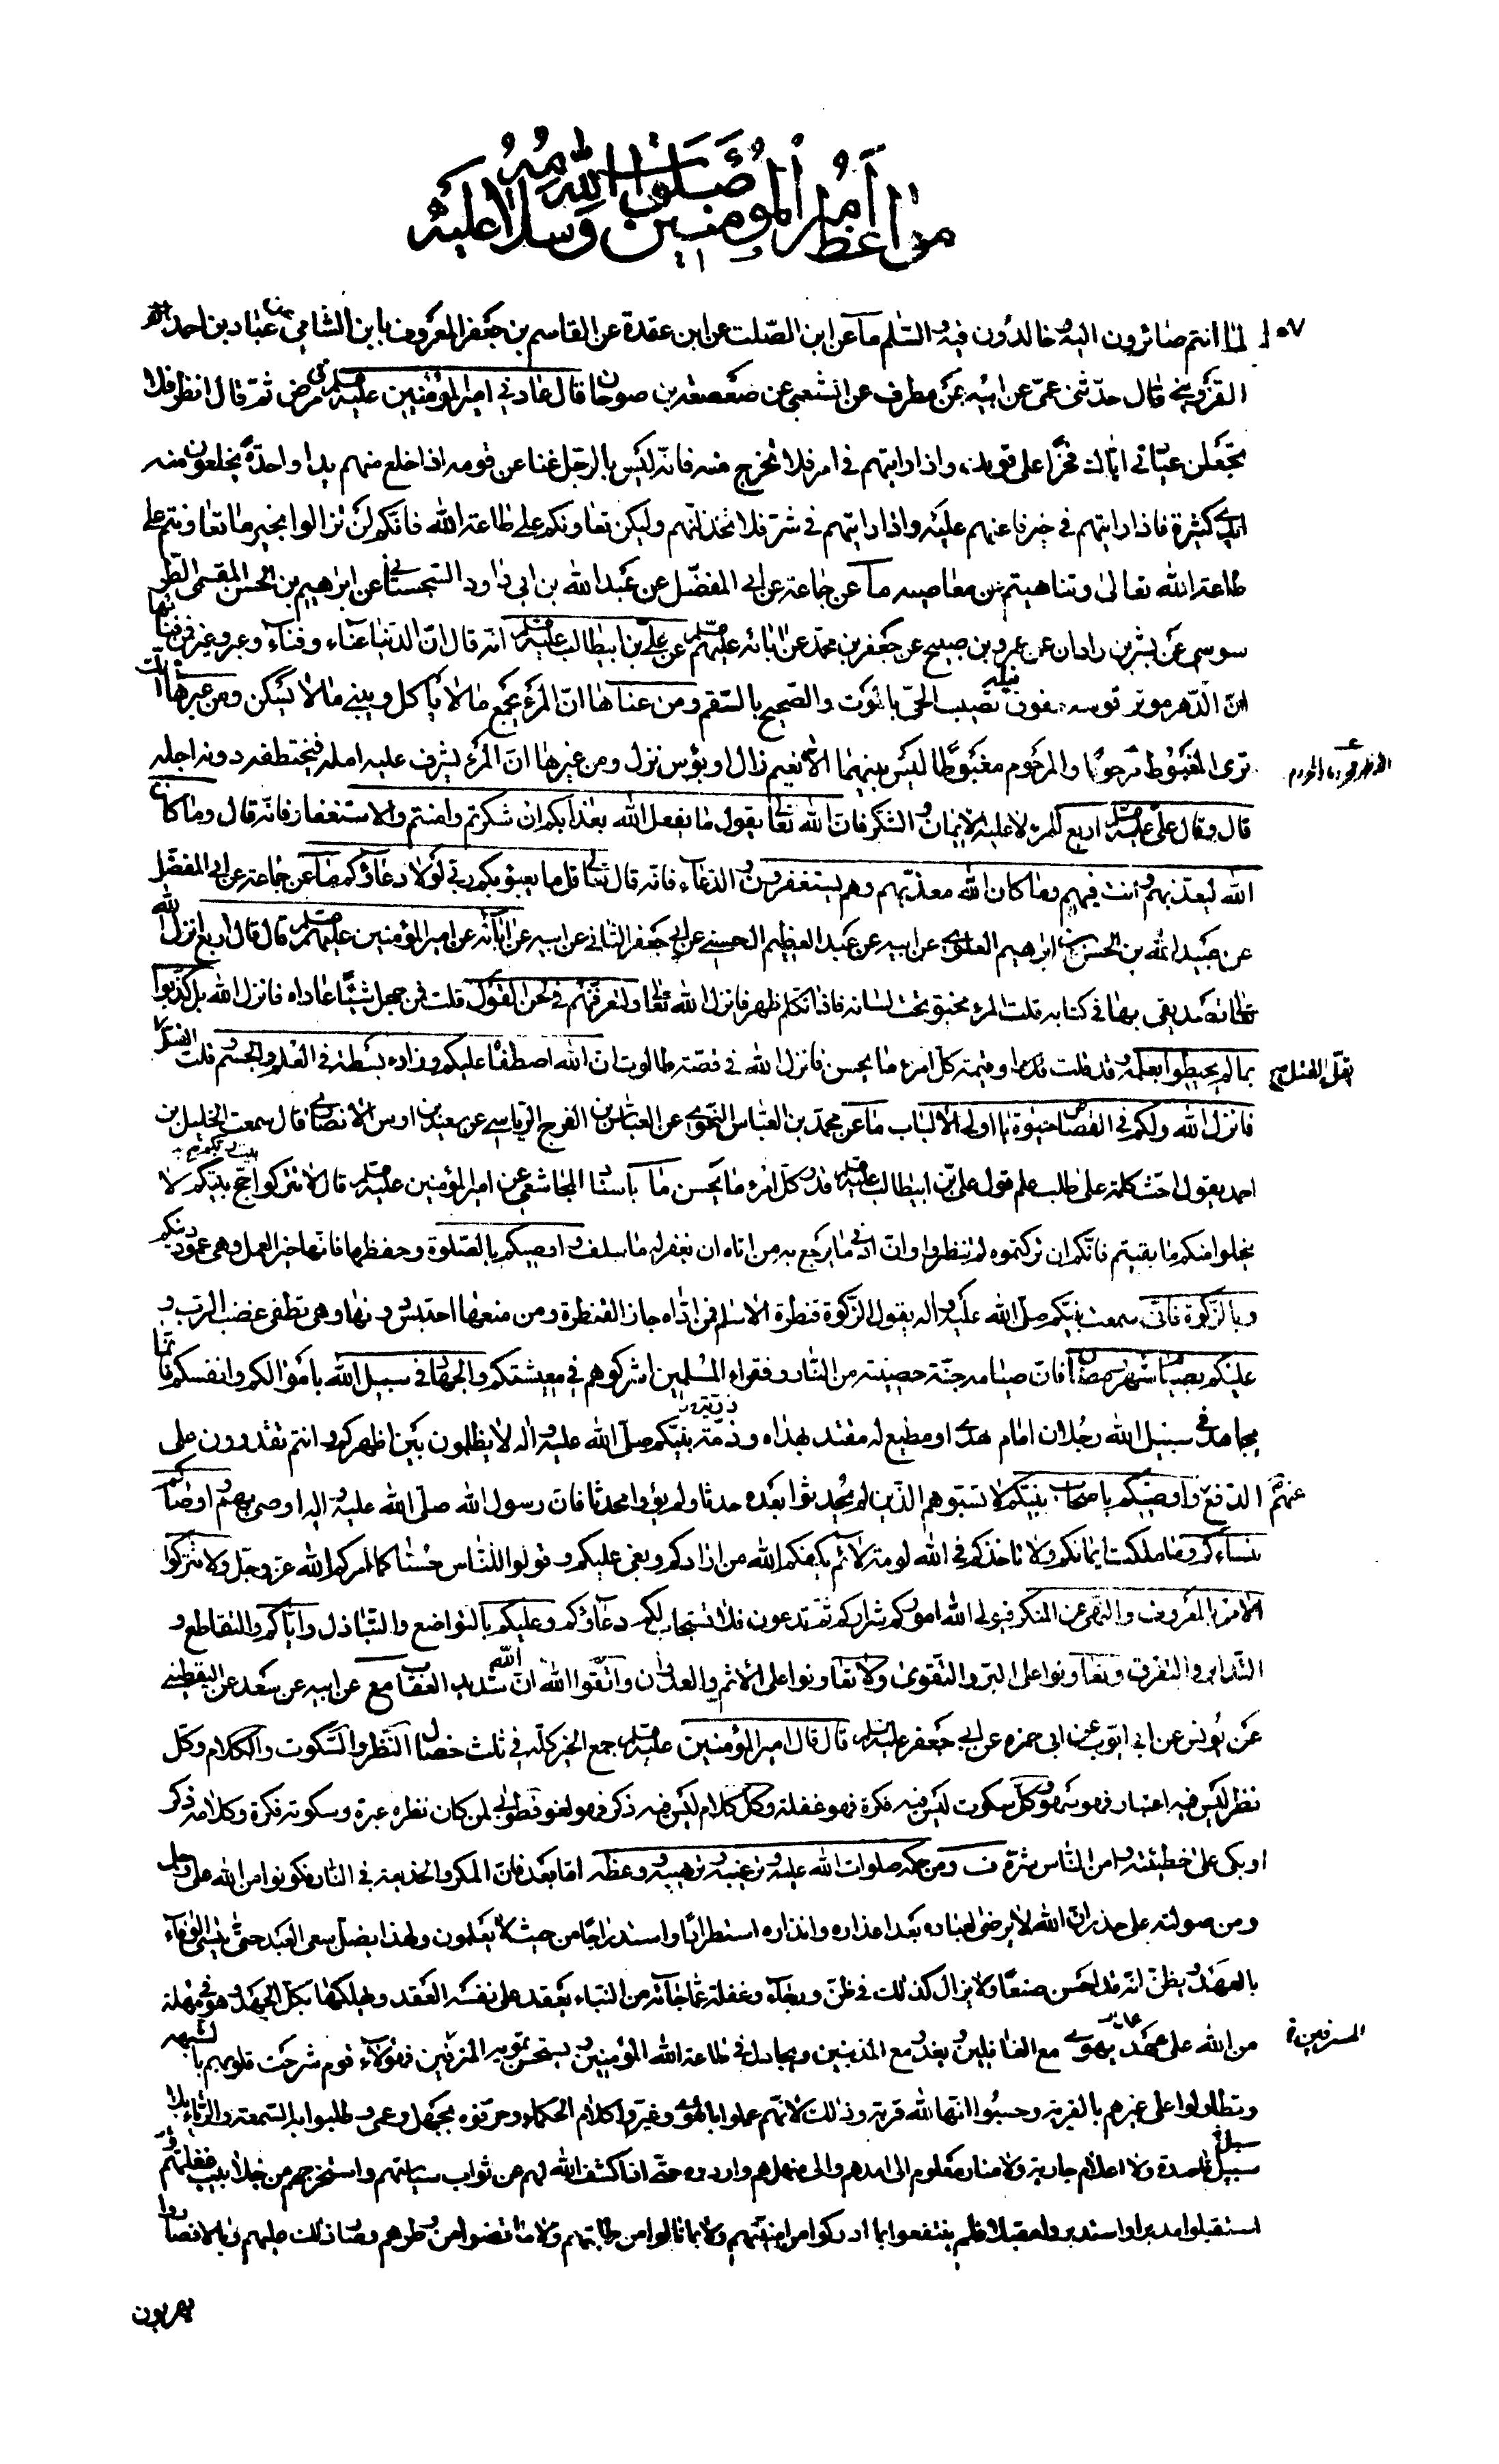 مواعظ أمير المؤمنين صلوات الله وسلامه عليه
١٠٧
لما انتم صائرون اليه و خالدون فيه و السلم ما عن ابن الصلت عن ابن عقدة عن القاسم بن جعفر المعروف بابن الشامي عن عباد بن احمد
القزويني قال حدثني عمي عن ابيه عن مطرف عن الشعبي عن صعصعة بن صوحان قال عادني امير المؤمنين عليه السلم في مرض ثم قال انظر فلا
تجعلن عيادتي اياك فخرا على قومك واذا رايتهم في امر فلا تخرج منه فانه ليس بالرجل غنا عن قومه اذا خلع منهم يدا واحدة يخلعون منه
ايدي كثيرة فاذا رايتهم في خير فاعنهم عليه واذا رايتهم في شر فلا تخذلنهم وليكن تعاونكم على طاعة الله فانكم لن تزالوا بخير ما تعاونتم على
طاعة الله تعالى وتناهيتم عن معاصيه ما عن جماعة عن ابي المفضل عن عبد الله بن ابي داود السجستاني عن ابرهيم بن الحسن المقسمي الطر
سوسي عن بشر بن زاذان عن عمر بن صبيح عن جعفر بن محمد عن ابائه عليهم السلم عن علي بن ابيطالب عليه السلم انه قال ان الدنيا عناء وفناء وعبر وغير فمن فنائها
ان الدهر موتر قوسه مفوق نبله تصيب الحي بالموت والصحيح بالسقم ومن عناها ان المرء يجمع ما لا ياكل ويبني ما لا يسكن ومن عبرها انك
ترى المغبوط مرحوما والمرحوم مغبوطا ليس بينهما الا نعيم زال او بؤس نزل ومن غيرها ان المرء يشرف عليه امله فيختطفه دونه اجله
قال وقال علي عليه السلم اربع للمرء لا عليه الايمان و الشكر فان الله تعالى يقول ما يفعل الله بعذابكم ان شكرتم وامنتم والاستغفار فانه قال وما كان
الله ليعذبهم و انت فيهم وما كان الله معذبهم وهم يستغفرون و الدعاء فانه قال تعالى قل ما يعبؤ بكم ربي لولا دعاؤكم ما عن جماعة عن ابي المفضل
عن عبيد الله بن الحسن بن ابرهيم العلوي عن ابيه عن عبد العظيم الحسني عن ابي جعفر الثاني عن ابيه عن ابائه عن امير المؤمنين عليهم السلم قال قال اربع انزل الله
تعالى تصديقي بها في كتابه قلت المرء مخبو تحت لسانه فاذا تكلم ظهر فانزل الله تعالى ولتعرفنهم في لحن القول قلت فمن جهل شيئا عاداه فانزل الله بل كذبوا
بما لم يحيطوا بعلمه و قلت قدر او قيمة كل امرء ما يحسن فانزل الله في قصة طالوت ان الله اصطفاه عليكم وزاده بسطة في العلم والجسم و قلت القتل يقل القتل
فانزل الله ولكم في القصاص حيوة يا اولي الالباب ما عن محمد بن العباس النحوي عن العباس بن الفرج الرياشي عن سعيد بن اوس الانصاري قال سمعت الخليل بن
احمد يقول احث كلمة على طلب علم قول علي بن ابيطالب عليه السلم قدر كل امرء ما يحسن ما باسناد المجاشعي عن امير المؤمنين عليه السلم قال لا تتركوا حج بيتكم لا
يخلوا منكم ما بقيتم فانكم ان تركتموه لم تنظروا وان ادنى ما يرجع به من اتاه ان يغفر له ما سلف و اوصيكم بالصلوة وحفظها فانها خير العمل وهي عمود دينكم
و بالزكوة فاني سمعت نبيكم صلى الله عليه و اله يقول الزكوة قنطرة الاسلم فمن اداه جاز القنطرة ومن منعها احتبس دونها وهي تطفي غضب الرب و
عليكم بصيام شهر رمضان فان صيامه جنة حصينة من النار و فقراء المسلمين اشركوهم في معيشتكم والجهاد في سبيل الله باموالكم وانفسكم فانما
يجاهد في سبيل الله رجلان امام هدى او مطيع له مقتد بهداه و ذمة نبيكم صلى الله عليه و اله لا يظلمون بين اظهركم و انتم تقدرون على
الدفع عنهم و اوصيكم باصحاب نبيكم لا تسبوهم الذين لم يحدثوا بعده حدثا ولم يؤوا محدثا فان رسول الله صلى الله عليه و اله اوصى بهم و اوصاكم
بنساءكم و ما ملكت ايمانكم ولا تاخذكم في الله لومة لائم يكفكم الله من ارادكم و بغى عليكم و قولوا للناس حسنا كما امركم الله عز وجل ولا تتركوا
الامر بالمعروف والنهي عن المنكر فيولي الله اموركم شراركم ثم تدعون فلا تستجاب لكم دعاؤكم و عليكم بالتواضع والتباذل و اياكم والتقاطع و
التدابر و التفرق و تعاونوا على البر والتقوى ولا تعاونوا على الاثم والعدوان واتقوا الله ان الله شديد العقاب مع عن ابيه عن سعد عن اليقطيني
عن يونس عن ابي ايوب عن ابي حمزه عن ابي جعفر عليه السلم قال قال امير المؤمنين عليه السلم جمع الخير كله في ثلث خصال النظر و السكوت والكلام وكل
نظر ليس فيه اعتبار فهو سهو و كل سكوت ليس فيه فكرة فهو غفلة وكل كلام ليس فيه ذكر فهو لغو فطوبى لمن كان نظره عبرة و سكوته فكرة وكلامه ذكر
او بكى على خطيئته و امن الناس شره ف ومن حكمه صلوات الله عليه و ترغيبه و ترهيبه و وعظه اما بعد فان المكر والخديعة في النار فكونوا من الله على وجل
ومن صولته على حذر ان الله لا يرضى لعباده بعد اعذاره و انذاره استطرادا و استدراجا من حيث لا يعلمون ولهذا يضل سعي العبد حتى ينسى الوفاء
بالعهد و يظن انه قد احسن صنعا ولا يزال كذلك في ظن و رجاء و غفلة عما جائه من النباء يعقد على نفسه العقد و يهلكها بكل الجهد و هو في مهلة
من الله على عهد يهوي مع الغافلين و يغدو مع المذنبين و يجادل في طاعة الله المؤمنين و يستحسن تمويه المترفين فهؤلاء قوم شرحت قلوبهم بالشبهة
وتطاولوا على غيرهم بالفرية و حسبوا انها لله قربة و ذلك لانهم عملوا بالهوى و غيروا كلام الحكماء و حرفوه بجهل و عمى و طلبوا به السمعة و الرياء بلا
سبيل قاصدة ولا اعلام جارية ولا منار معلوم الى امدهم و الى منهل هم واردوه حتى اذا كشف الله لهم عن ثواب سياستهم و استخرجهم من جلابيب غفلتهم
استقبلوا مدبرا و استدبروا مقبلا فلم ينتفعوا بما ادركوا من امنيتهم ولا بما نالوا من طلبتهم ولا ما قضوا من وطرهم و صار ذلك عليهم وبالا فصاروا
يهربون